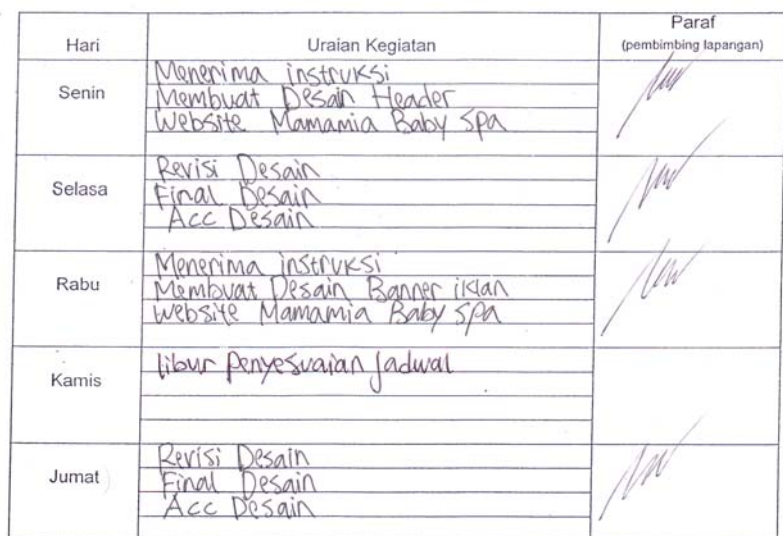 Hari Uraian Kegiatan Paraf
(pembimbing lapangan)
Senin
Menerima instruksi
Membuat Desain Header
Website Mamamia Baby Spa
Selasa
Revisi Desain
Final Desain
Acc Desain
Rabu
Menerima instruksi
Membuat Desain Banner iklan
Website Mamamia Baby Spa
Kamis
libur penyesuaian jadwal
Jumat
Revisi Desain
Final Desain
Acc Desain